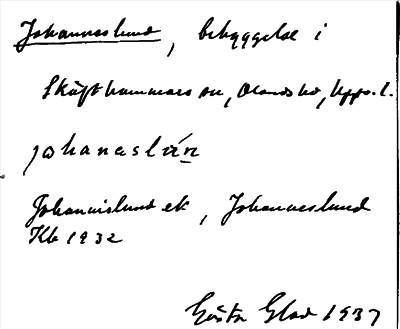 Johanneslund, bebyggelse i
Skäfthammars sn, Olands hd, Upps. l.
johanaslún
Johannislund ek, Johanneslund
Kb 1932
Gösta Glad 1937